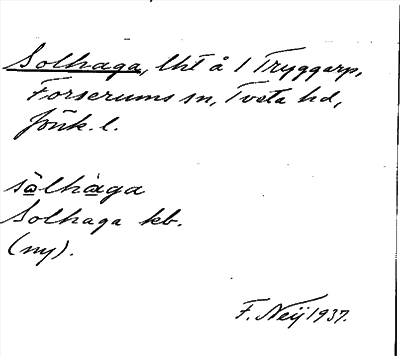 Solhaga, lht å 1 Tryggarp,
Forserums sn, Tveta hd,
Jönk. l.
sòlhàga
Solhaga kb.
(ny).
F. Neij 1937.